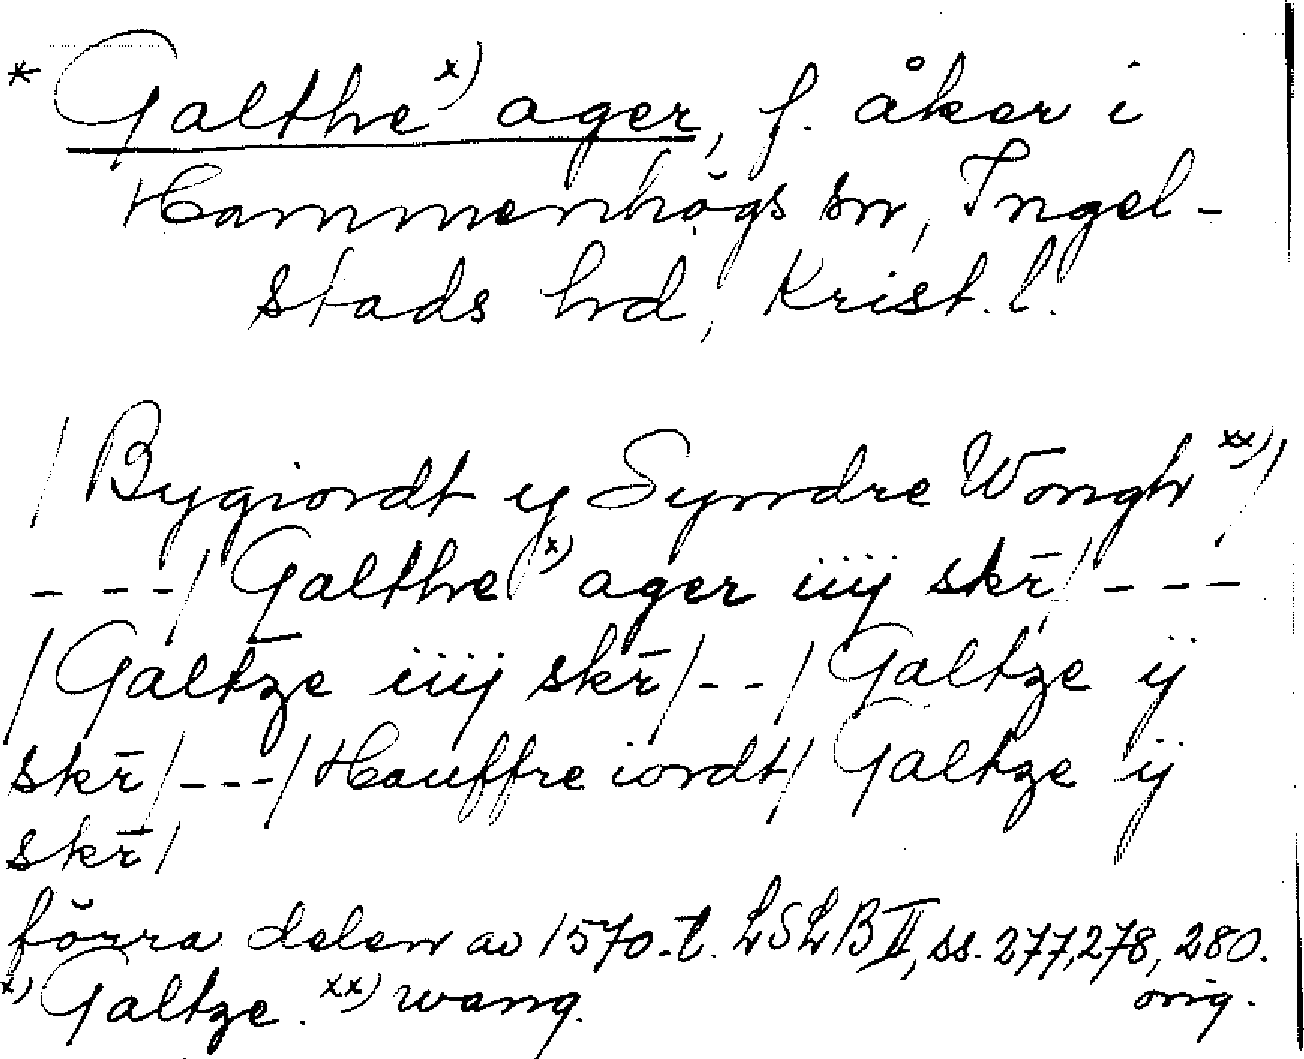 * Galthe x) ager, f. åker i
Hammenhögs sn, Ingel-
stads hd, Krist. l.
/ Bygiordt y Syndre Wongh xx) /
- - - / Galthe x) ager iiij skr̄ / - - -
/ Galtze iiij skr̄ / - - / Galtze ij
skr̄ / - - - / Hauffre iordt / Galtze ij
skr̄ /
förra delen av 1570-t. LSLB II, ss. 277, 278, 280.
orig.
x) Galtze. xx) wang.